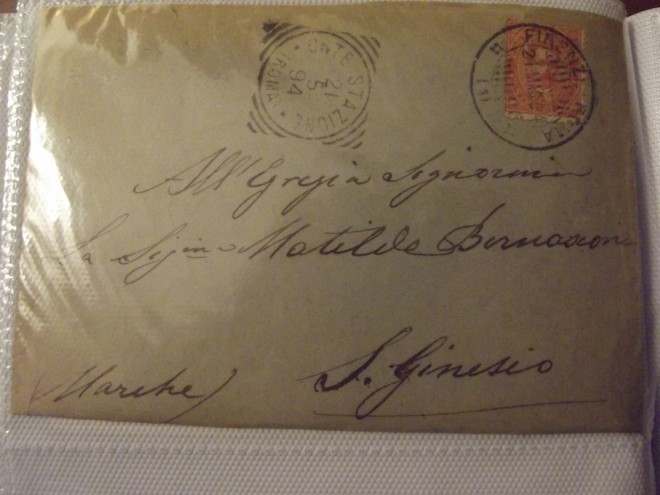 ORTE STAZIONE
21
5
94
(ROMA)
FIRENZE
All'Egregia Signorina
La Sig.ina Matilde Bernaxone
S. Ginesio
(Marche)